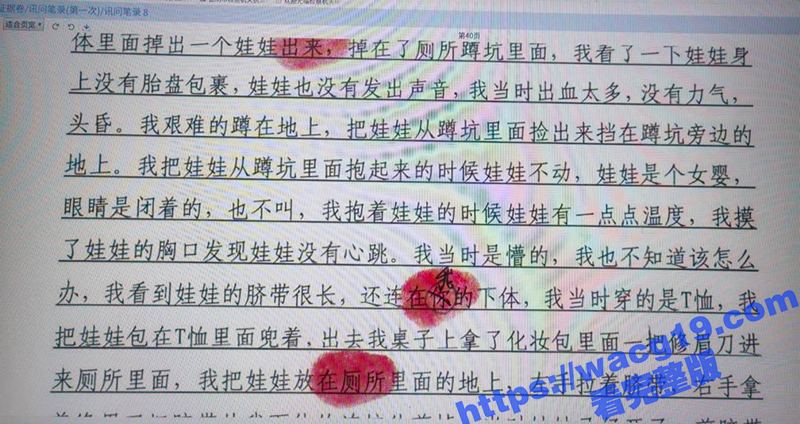 证据卷/讯问笔录(第一次)/讯问笔录 8
适合页宽
第40页
体里面掉出一个娃娃出来，掉在了厕所蹲坑里面，我看了一下娃娃身
上没有胎盘包裹，娃娃也没有发出声音，我当时出血太多，没有力气，
头昏。我艰难的蹲在地上，把娃娃从蹲坑里面捡出来挡在蹲坑旁边的
地上。我把娃娃从蹲坑里面抱起来的时候娃娃不动，娃娃是个女婴，
眼睛是闭着的，也不叫，我抱着娃娃的时候娃娃有一点点温度，我摸
了娃娃的胸口发现娃娃没有心跳。我当时是懵的，我也不知道该怎么
我
办，我看到娃娃的脐带很长，还连在你的下体，我当时穿的是T恤，我
把娃娃包在T恤里面兜着，出去我桌子上拿了化妆包里面一把修眉刀进
来厕所里面，我把娃娃放在厕所里面的地上，左手拉着脐带，右手拿
https://wacg19.com
看完整版